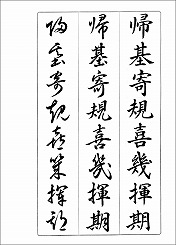 帰基寄規喜幾揮期
帰基寄規喜幾揮期
帰基寄規喜幾揮期